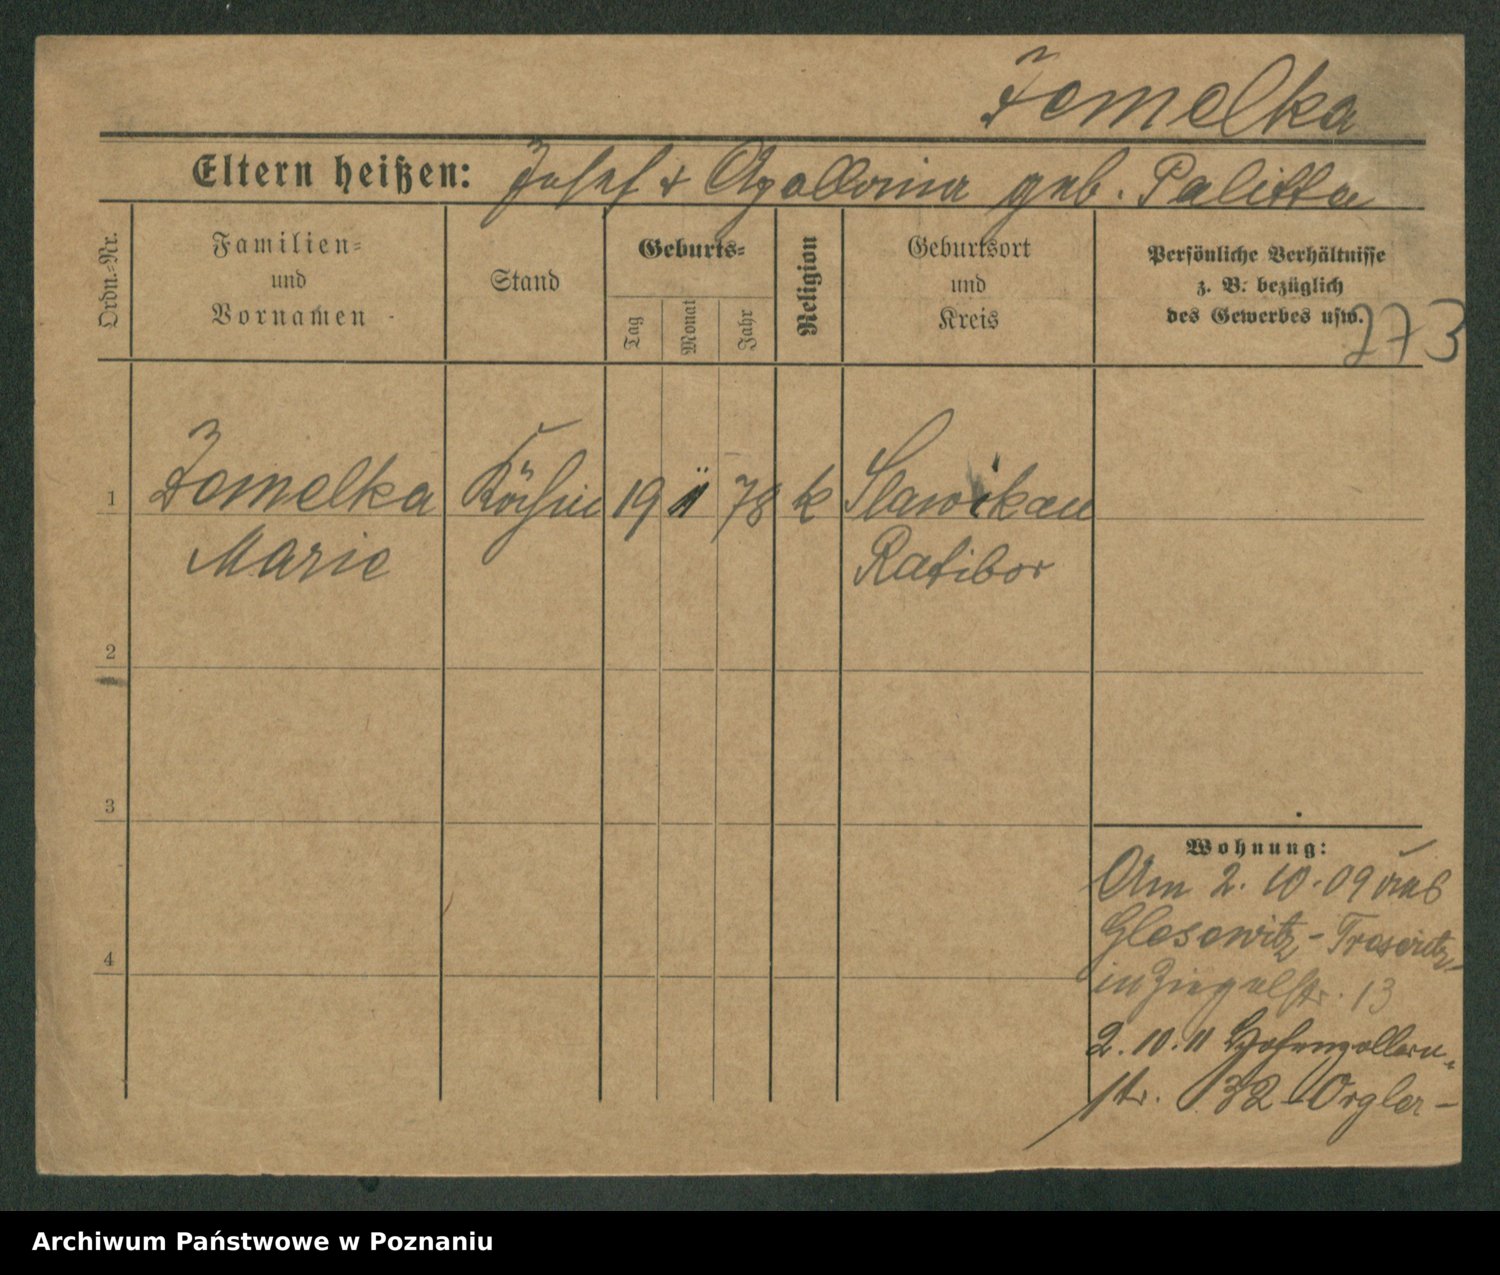 Zemelka
Eltern heißen: Josef + Apollonia geb. Palitta
Ordn.-Nr.
Familien-
und
Vornamen
Stand
Geburts-
Tag
Monat
Jahr
Religion
Geburtsort
und
Kreis
Persönliche Verhältnisse
z. B. bezüglich
des Gewerbes usw.
273
1 Zemelka Köchin 19 11 78 k Slawikau
Marie Ratibor
2
3
4
Wohnung:
Am 2. 10. 09 aus
in Ziegelstr. 13
2. 10. 11 Hohenzollern-
str. 32 - Orgler -
Archiwum Państwowe w Poznaniu